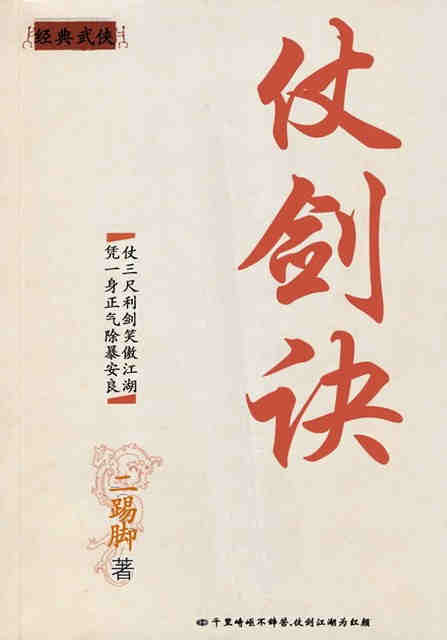 经典武侠
仗剑诀
仗三尺利剑笑傲江湖
凭一身正气除暴安良
二踢脚 著
千里崎岖不辞苦，仗剑江湖为红颜